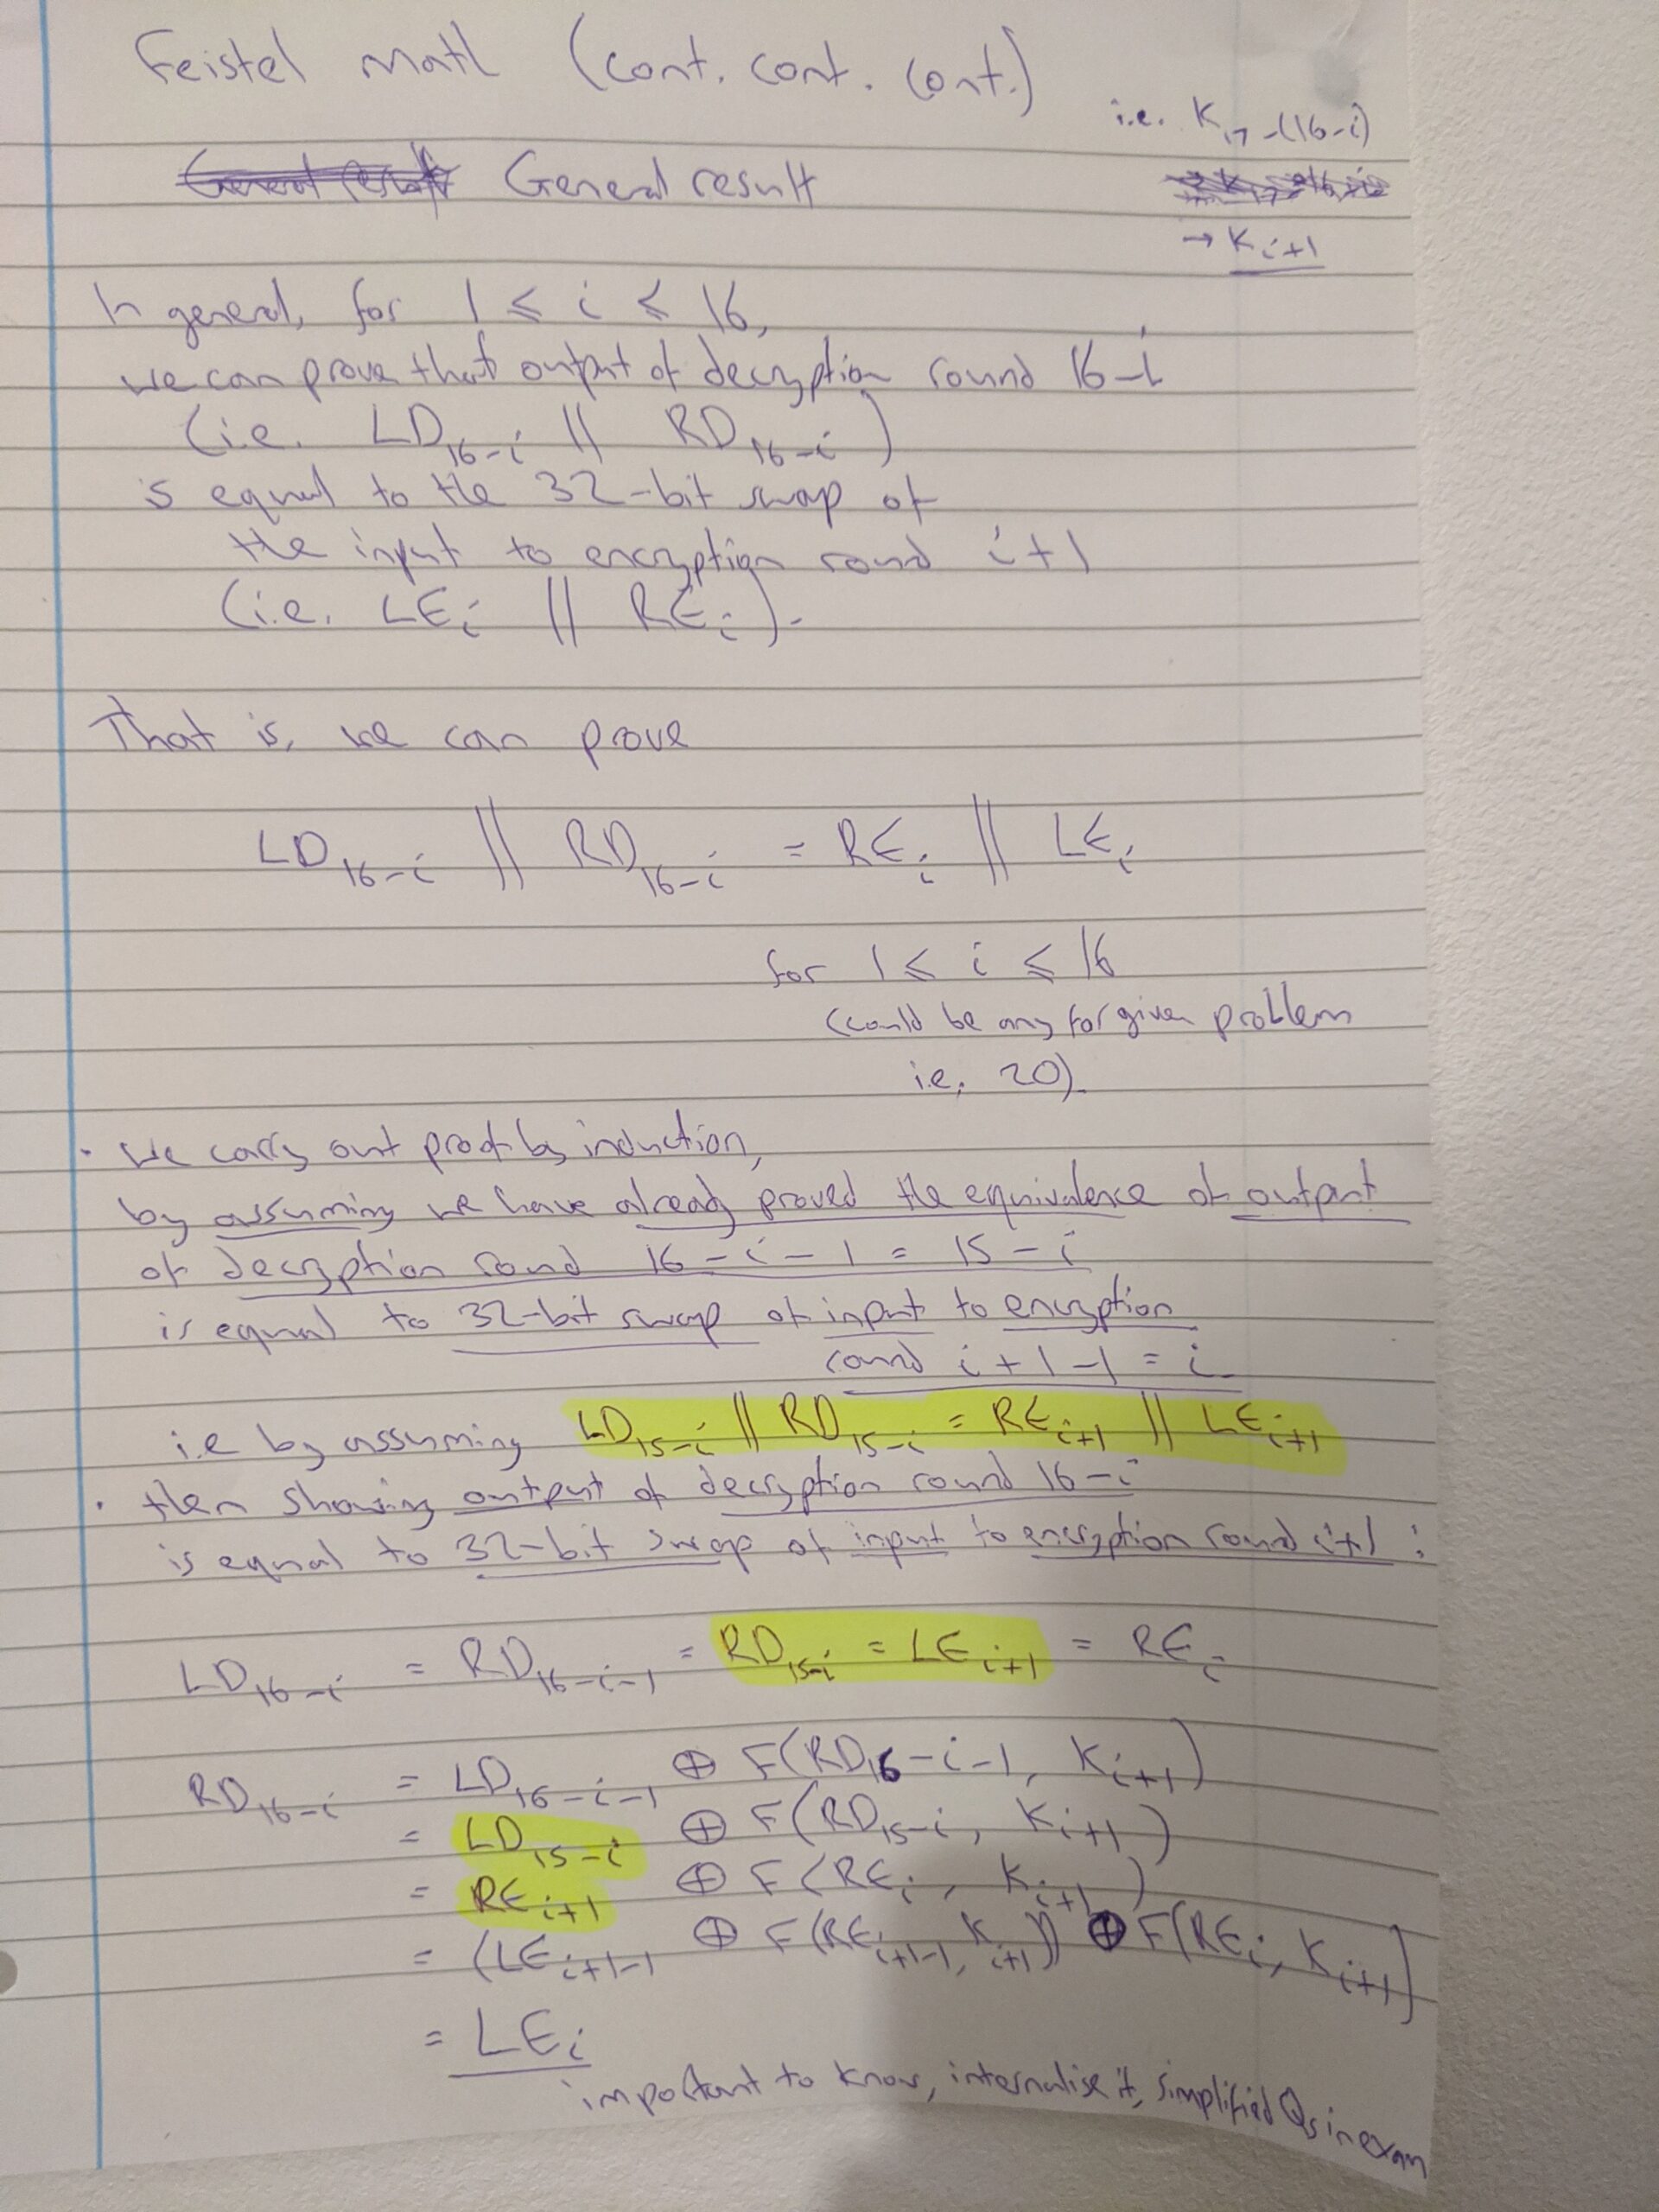 Feistel Math (cont. cont. cont.)
i.e. K₁₇₋(16-i)
General result General result
→ Kᵢ₊₁
In general, for 1 ≤ i ≤ 16,
we can prove that output of decryption round 16-i
(i.e. LD₁₆₋ᵢ || RD₁₆₋ᵢ)
is equal to the 32-bit swap of
the input to encryption round i+1
(i.e. LEᵢ || REᵢ).
That is, we can prove
LD₁₆₋ᵢ || RD₁₆₋ᵢ = REᵢ || LEᵢ
for 1 ≤ i ≤ 16
(could be any for given problem
i.e. 20).
• We carry out proof by induction,
by assuming we have already proved the equivalence of output
of decryption round 16-i-1 = 15-i
is equal to 32-bit swap of input to encryption
round i+1-1 = i.
i.e by assuming LD₁₅₋ᵢ || RD₁₅₋ᵢ = REᵢ₊₁ || LEᵢ₊₁
• then showing output of decryption round 16-i
is equal to 32-bit swap of input to encryption round i+1 :
LD₁₆₋ᵢ = RD₁₆₋ᵢ₋₁ = RD₁₅₋ᵢ = LEᵢ₊₁ = REᵢ
RD₁₆₋ᵢ = LD₁₆₋ᵢ₋₁ ⊕ F(RD16-i-1, Kᵢ₊₁)
= LD₁₅₋ᵢ ⊕ F(RD₁₅₋ᵢ, Kᵢ₊₁)
= REᵢ₊₁ ⊕ F(REᵢ, Kᵢ₊₁)
= (LEᵢ₊₁₋₁ ⊕ F(REᵢ₊₁₋₁, Kᵢ₊₁)) ⊕ F(REᵢ, Kᵢ₊₁)
= LEᵢ
important to know, internalise it, simplified Qs in exam